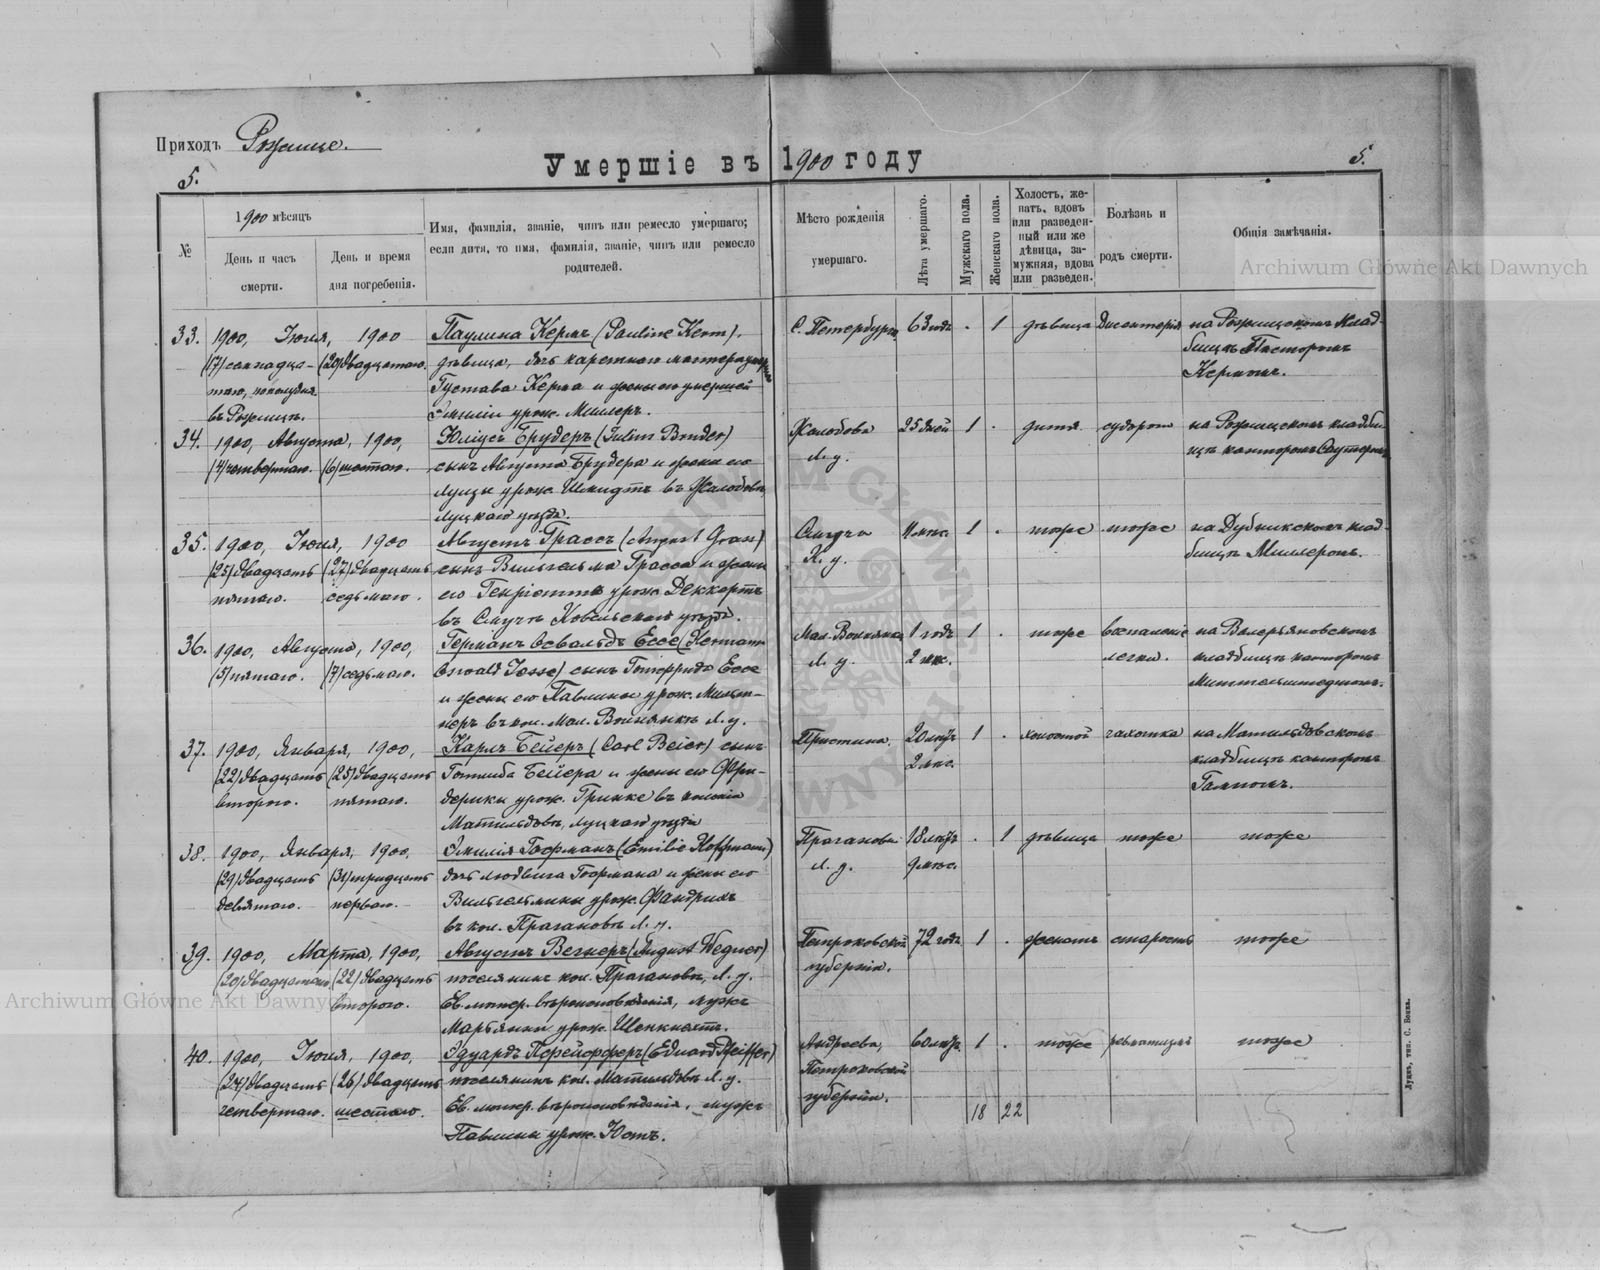 Приходъ Рожище.
Умершіе въ 1900 году
5.
5.
№
1900 мѣсяцъ
День и часъ смерти.
День и время дня погребенія.
Имя, фамилія, званіе, чинъ или ремесло умершаго;
если дитя, то имя, фамилія, званіе, чинъ или ремесло
родителей.
Мѣсто рожденія
умершаго.
Лѣта умершаго.
Мужскаго пола.
Женскаго пола.
Холостъ, же-
натъ, вдовъ
или разведен-
ный или же
дѣвица, за-
мужняя, вдова
или разведен.
Болѣзнь и
родъ смерти.
Общія замѣчанія.
33. 1900, Іюля, 1900 Паулина Кермъ (Pauline Kerm). С. Петербургъ 63 . 1 дѣвица Дисентерія на Рожищскомъ клад-
(17) семнадца- (20) двадцатаго. дѣвица, дочь каретнаго мастера бищѣ Пасторомъ
таго, пополудни Густава Керма и жены его умершей Кермомъ.
въ Рожищѣ. Эмиліи урож. Миллеръ.
34. 1900, Августа, 1900, Юліусъ Брудеръ (Julius Bruder) Жалобова 25 дней 1 . дитя судороги на Рожищскомъ кладби-
(4) четвертаго. (6) шестаго. сынъ Августа Брудера и жены его Л. у. щѣ канторомъ
Луизы урож. Шмидтъ въ Жалобовѣ
Луцкаго уѣзда.
35. 1900, Іюля, 1900 Августъ Грассъ (August Grass) 1 . тоже тоже на Дубникскомъ клад-
(25) двадцать (27) двадцать сынъ Вильгельма Грасса и жены К. у. бищѣ Миллеромъ.
пятаго. седьмаго. его Генріетты урож. Деккертъ
въ Ковельскаго уѣзда.
36. 1900, Августа, 1900, Германъ Освальдъ Ессе (Hermann Мал. Волнянка 1 годъ 1 . тоже воспаленіе на Валерьяновскомъ
(5) пятаго. (7) седьмаго. Oswald Jesse) сынъ Готфрида Ессе Л. у. 2 мѣс. легки. кладбищѣ канторомъ
и жены его Павлины урож. Миттельштедтомъ.
неръ въ кол. Мал. Волнянкѣ Л. у.
37. 1900, Января, 1900, Карлъ Бейеръ (Carl Beier) сынъ 20 лѣтъ 1 . холостой чахотка на Матильдовскомъ
(22) двадцать (25) двадцать Готлиба Бейера и жены его Фри- 2 мѣс. кладбищѣ канторомъ
втораго. пятаго. дерики урож. Гринке въ колоніи
Матильдовъ, Луцкаго уѣзда
38. 1900, Января, 1900, Эмилія Гофманъ (Emilie Hoffmann) Праганова 18 лѣтъ . 1 дѣвица тоже тоже
(29) двадцать (31) тридцать дочь Людвига Гофмана и жены его Л. у. 9 мѣс.
девятаго. перваго. Вильгельмины урож. Фандрихъ
въ кол. Прагановъ Л. у.
39. 1900, Марта, 1900, Августъ Вегнеръ (August Wegner) Петроковской 72 годъ 1 . женатъ старость тоже
(20) двадцатаго (22) двадцать поселянинъ кол. Прагановъ, Л. у. губерніи.
втораго. Ев. лютер. вѣроисповѣданія, мужъ
Марьянны урож.
40. 1900, Іюля, 1900, Эдуардъ Пфейфферъ (Eduard Pfeiffer) Андреева, 60 лѣтъ 1 . тоже ревматизмъ тоже
(24) двадцать (26) двадцать поселянинъ кол. Матильдовъ Л. у. Петроковской
четвертаго. шестаго. Ев. лютер. вѣроисповѣданія, мужъ губерніи.
Павлины урож. Ютъ.
18 22
Луцкъ, тип. С. Бокка.
Archiwum Główne Akt Dawnych
Archiwum Główne Akt Dawnych